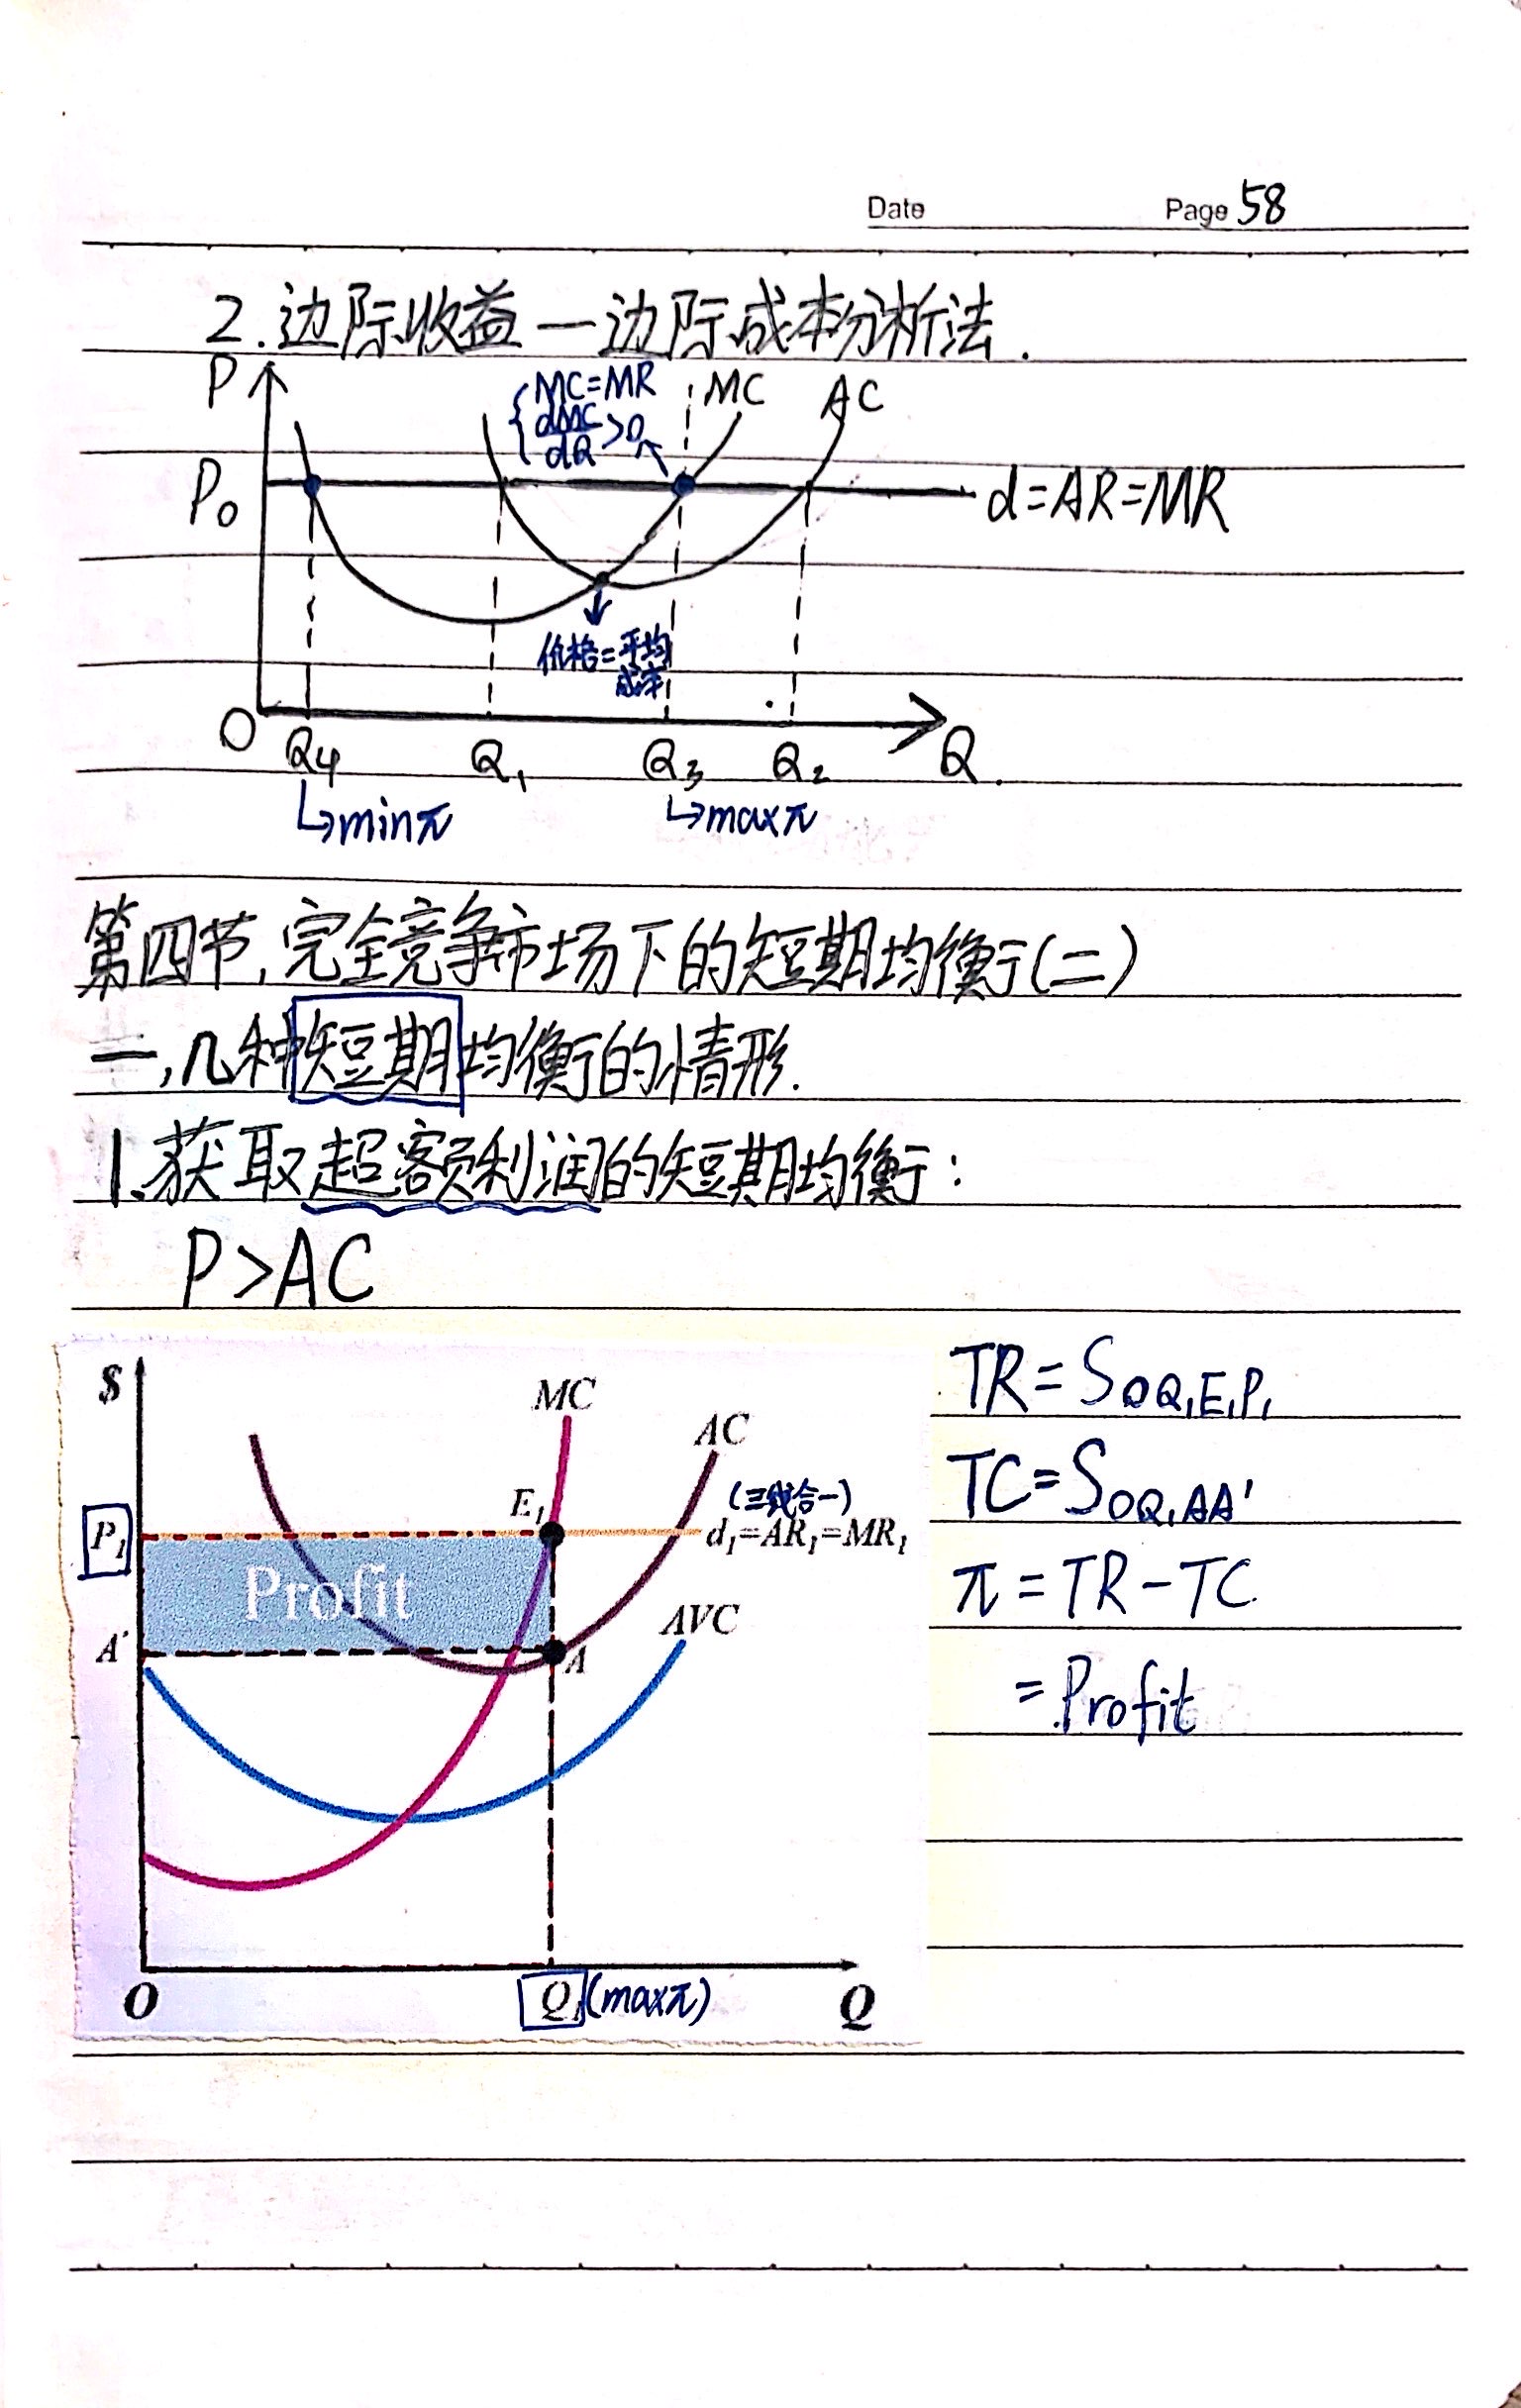 Date Page 58
2.边际收益—边际成本分析法.
P
MC=MR
dMC
dQ
>0
MC
AC
P₀
d=AR=MR
价格=平均
成本
O Q₄ Q₁ Q₃ Q₂ Q
↳minπ ↳maxπ
第四节,完全竞争市场下的短期均衡(二)
一,几种短期均衡的情形.
1.获取超额利润的短期均衡:
P>AC
$
MC
AC
E₁
(三线合一)
P₁
d₁=AR₁=MR₁
Profit
A'
A
AVC
O Q₁(maxπ) Q
TR=S OQ₁E₁P₁
TC=S OQ₁AA'
π=TR-TC
=Profit